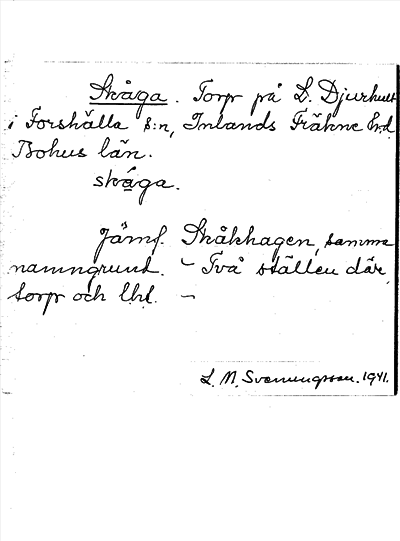 Skåga. Torp på L. Djurhult
i Forshälla s:n, Inlands Fräkne hd.
Bohus län.
skåga.
Jämf. Skåkhagen, samma
namngrund. – Två ställen där,
torp och lht. –
L. M. Svenungsson. 1941.